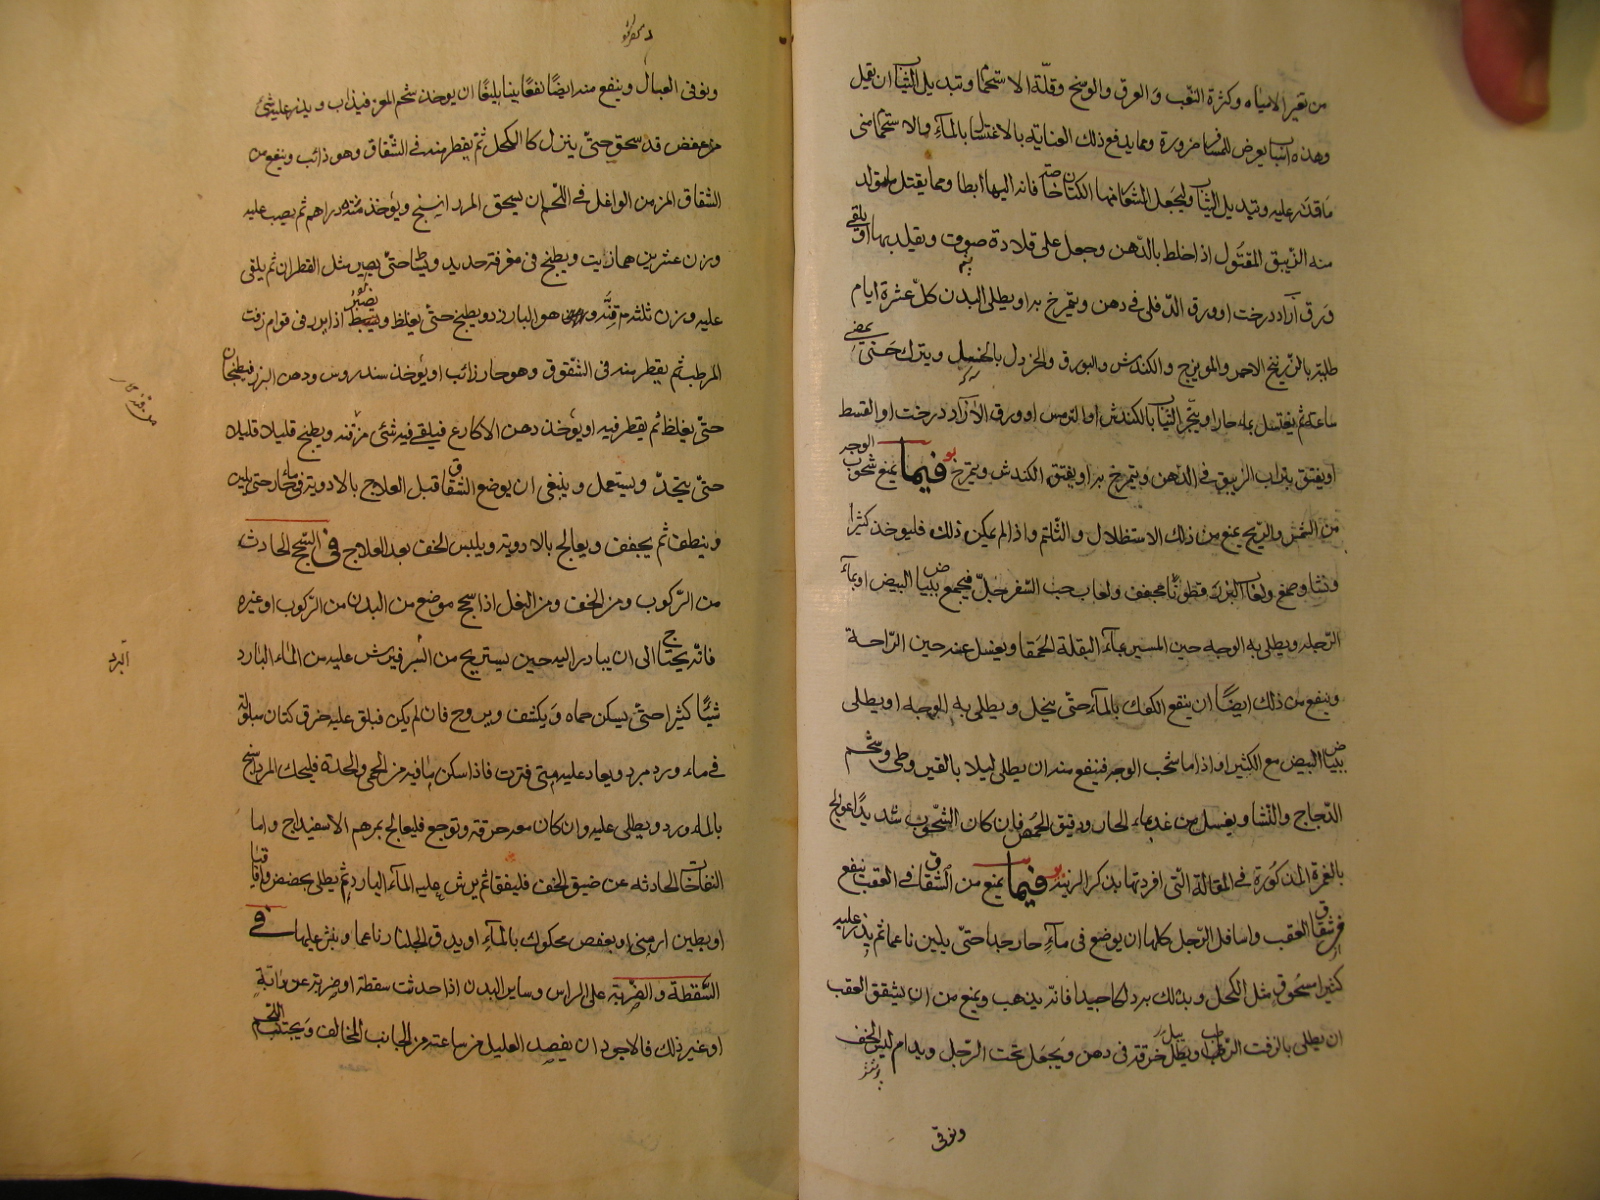 من تغير المياه وكثرة التعب والعرق والوسخ وقلة الاستحمام وتبديل الثياب ان يقمل
وهذه اشيا يعرض للمسافر ضرورة ومما يدفع ذلك العناية بالاغتسال بالمآء والاستحمام متى
ما قدر عليه وتبديل الثياب وليجعل الشعار منها الكتان خاصة فانه اليها ابطا ومما يقتل ما تولد
منه الزيبق المقتول اذا خلط بالدهن وجعل على قلادة صوف ويقلد بها او يلقى
ورق آزاد درخت او ورق الدفلى في دهن ويتمرخ به او يطلى البدن كل عشرة ايام
طلية بالزرنيخ الاحمر والمويزج والكندش والبورق والخردل بالخل ويترك حتى يمضى
ساعة ثم يغتسل بماء حار او يبخر الثياب بالكندش او الترمس او ورق الآزاد درخت او القسط
او يفتق بتراب الزيبق في الدهن ويتمرخ به او يفتق الكندش ويتمرخ به فيما يمنع شحوب الوجه
من الشمس والريح يمنع من ذلك الاستظلال والتلثم واذا لم يمكن ذلك فليوخذ كثيرا
ونشا وصمغ ولعاب البزر قطونا مجفف ولعاب حب السفرجل فيجمع ببياض البيض او بمآء
الرجلة ويطلى به الوجه حين المسير بمآء البقلة الحمقا ويغسل عنه حين الراحة
وينفع من ذلك ايضا ان ينقع الكعك بالمآء حتى ينحل ويطلى به الوجه او يطلى
ببياض البيض مع الكثيرا واذا ما شحب الوجه فينفع منه ان يطلى ليلا بالقيروطى وشحم
الدجاج والنشا ويغسل من غد بماء الحار ودقيق الحمص فان كان الشحوب شديدا عولج
بالغمرة المذكورة في المقالة التى افردتها بذكر الزينة فيما يمنع من الشقاق في العقب ينفع
من شقاق العقب واسافل الرجل كلها ان يوضع في مآء حار جدا حتى يلين ناعما ثم يذر عليه
كثيرا مسحوق مثل الكحل ويدلك به دلكا جيدا فانه يذهب ويمنع من ان يشقق العقب
ان يطلى بالزفت الرطب او يبل خرقة في دهن ويجعل تحت الرجل ويدام لبس الخف
وتوقى
وتوقى العبال وينفع منه ايضا نفعا بينا بليغا ان يوخذ شحم المعز فيذاب ويذر عليه شئ
من عفص قد سحق حتى ينزل كالكحل ثم يقطر منه في الشقاق وهو ذائب وينفع من
الشقاق المزمن الواغل في اللحم ان يسحق المرداسنج ويؤخذ منه دراهم ثم يصب عليه
وزن عشرين درهما زيت ويطبخ في مغرفة حديد ويساط حتى يصير مثل القطران ثم يلقى
عليه وزن ثلثة قنة وهو البارزد ويطبخ حتى يغلظ ويصير اذا برد في قوام زفت
المرطب ثم يقطر منه في الشقوق وهو حار ذائب او يؤخذ سندروس ودهن البزر فيطبخان
حتى يغلظ ثم يقطر فيه او يؤخذ دهن الاكارع فيلقى فيه شئ من قنة ويطبخ قليلا قليلا
حتى يتحد ويستعمل وينبغى ان يوضع الشقاق قبل العلاج بالادوية في ماء حار حتى يلين
وينظف ثم يجفف ويعالج بالادوية ويلبس الخف بعد العلاج في السحج الحادث
من الركوب ومن الخف ومن النعل اذا سحج موضع من البدن من الركوب او غيره
فانه يحتاج الى ان يبادر اليه حين يستريح من السير فيرش عليه من الماء البارد
شيئا كثيرا حتى يسكن حماه ويكشف ويروح فان لم يكن فيلق عليه خرق كتان مبلولة
في ماء ورد مبرد ويعاد عليه متى فترت فاذا سكن ما فيه من الحمى والحدة فليحك المرداسنج
بالماء ورد ويطلى عليه وان كان معه حرقة وتوجع فليعالج بمرهم الاسفيداج واما
النفاخات الحادثة عن ضيق الخف فليفقا ثم يرش عليه المآء البارد ثم يطلى بحضض واقاقيا
او بطين ارمنى او بعفص محكوك بالمآء او يدق الجلنار ناعما وينثر عليها في
السقطة والضربة على الراس وساير البدن اذا حدثت سقطة او ضربة عن دابة
او غير ذلك فالاجود ان يفصد العليل من ساعته من الجانب المخالف ويجتنب اللحم
البرد